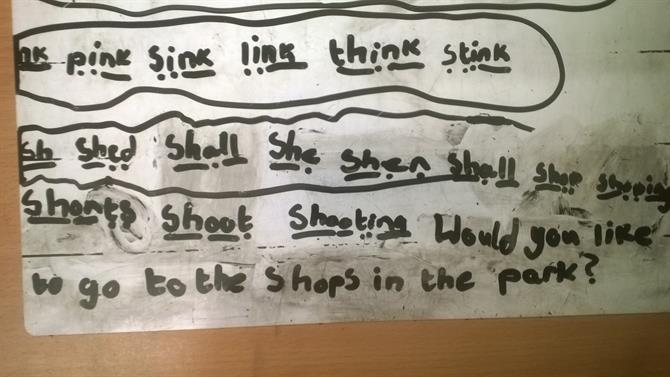 nk pink sink link think stink
sh shed shall she shen shall shop shoping
shorts shoot shooting Would you like
to go to the shops in the park?